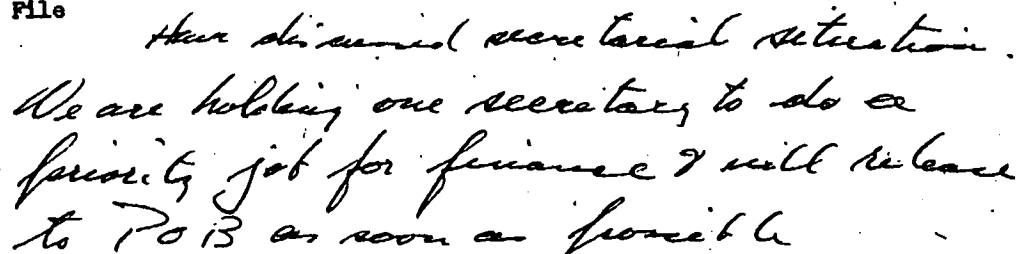 File
Have discussed secretarial situation.
We are holding one secretary to do a
priority job for finance & will release
to POB as soon as possible